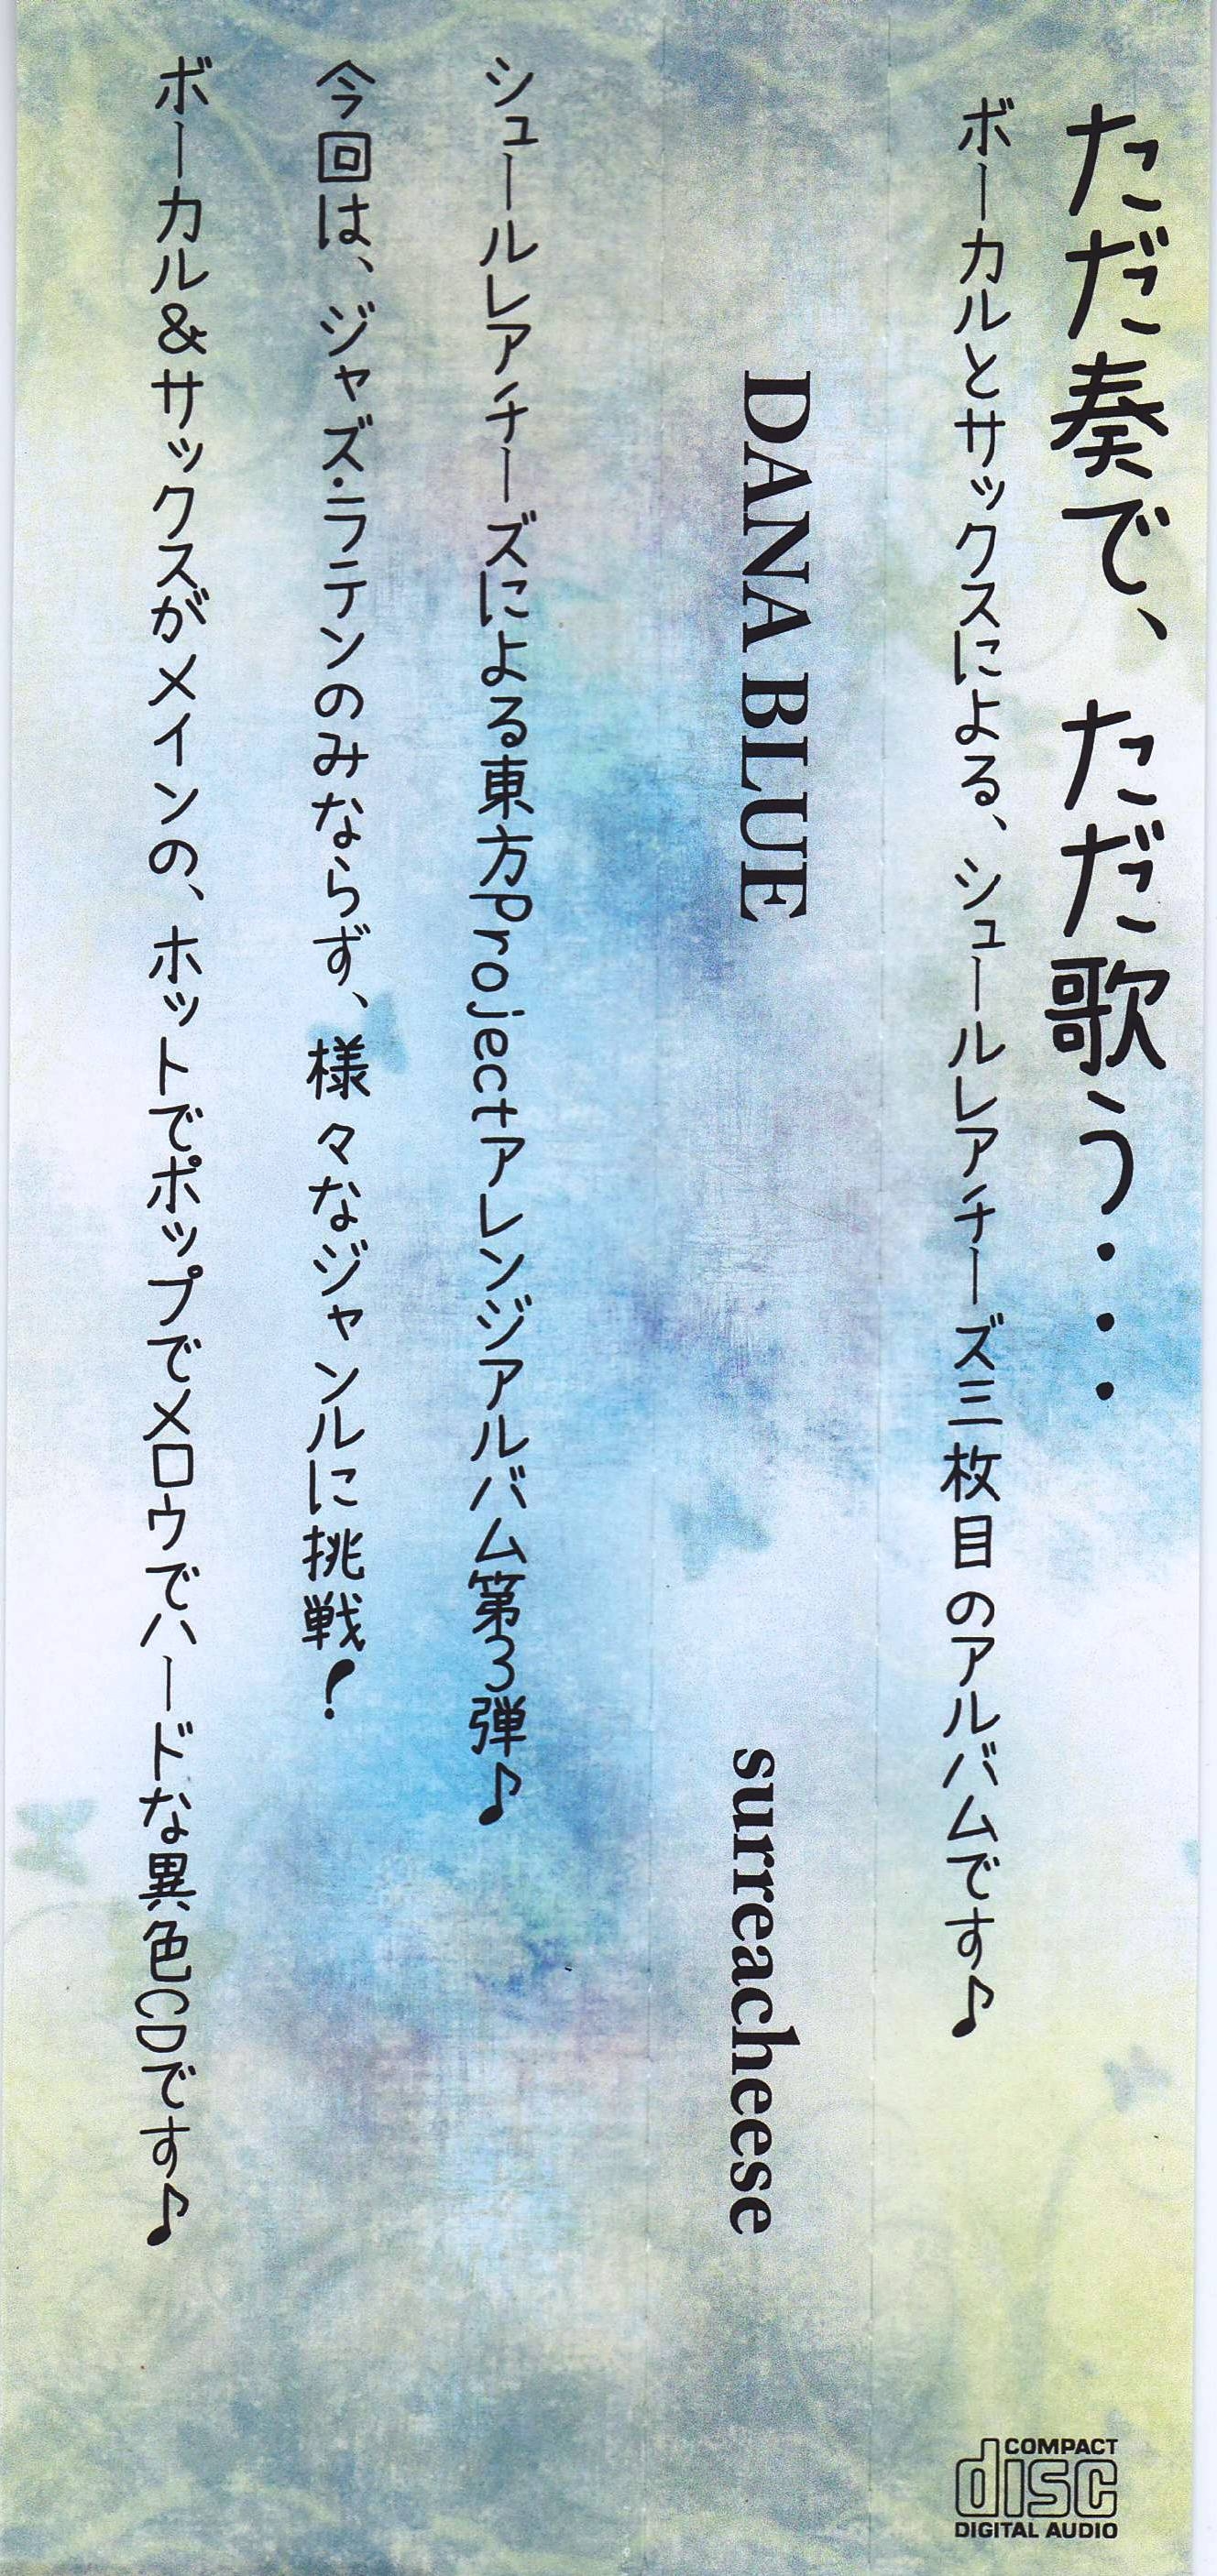 ただ奏で、ただ歌う・・・
ボーカルとサックスによる、シュールレアチーズ三枚目のアルバムです♪
DANA BLUE
surreacheese
シュールレアチーズによる東方Projectアレンジアルバム第3弾♪
今回は、ジャズ・ラテンのみならず、様々なジャンルに挑戦！
ボーカル＆サックスがメインの、ホットでポップでメロウでハードな異色CDです♪
COMPACT
disc
DIGITAL AUDIO